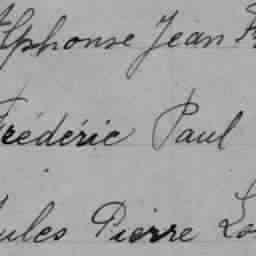 Alphonse Jean
Frédéric Paul
Jules Pierre